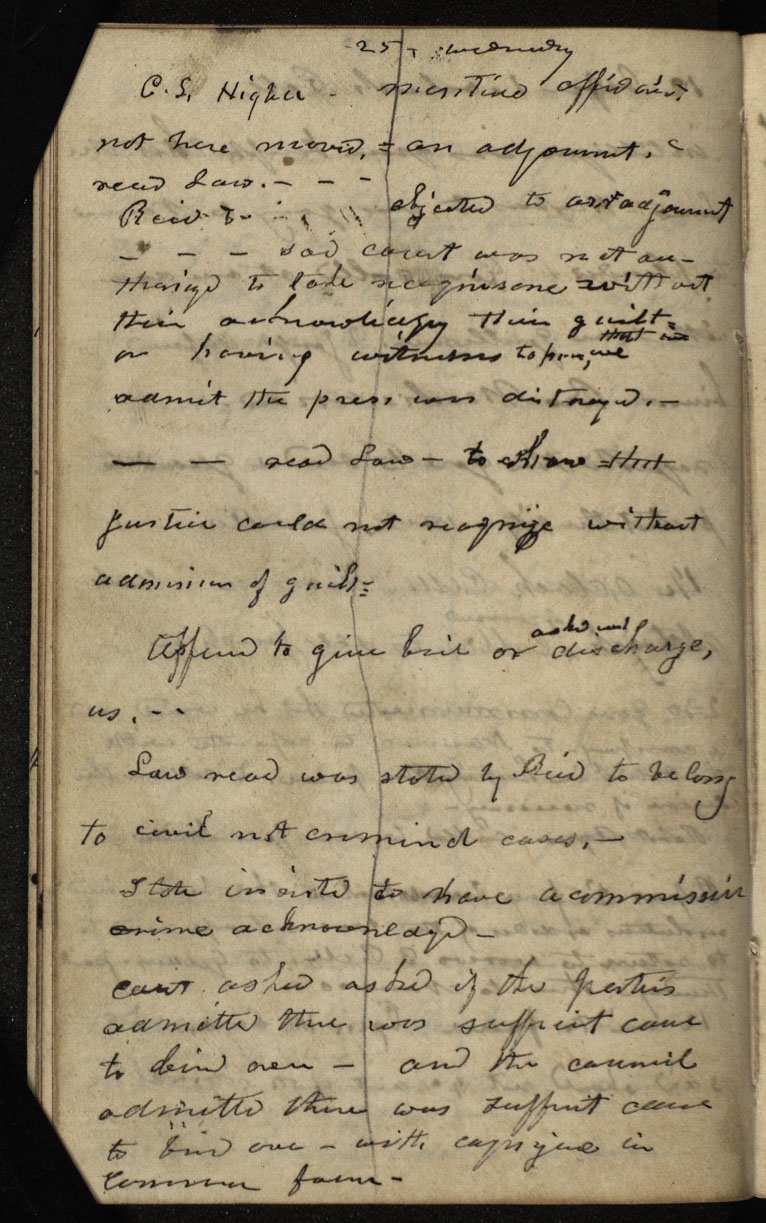 25, wednesday
C. S. Higbee - mentioned affidavits
not here moved, = an adjournmt. =
read Law. - - -
Reid objected to adjournmt
- - - said court was not au-
thorized to take recognisance without
their acknowledgeg their guilt =
or having witnesses to prove, we
admit the press was distroyed. -
- - read Law - to show that
Justice could not recognize without
admission of guilt =
Offered to give bail or asked discharge,
us. - -
Law read was stated by Reid to belong
to civil not criminal cases, -
State insisted to have a commissi
crime acknowledged -
court asked asked if the parties
admitted there was suffict cause
to bind over - and the council
admitted there was suffict cause
to bind over - with in
common form -